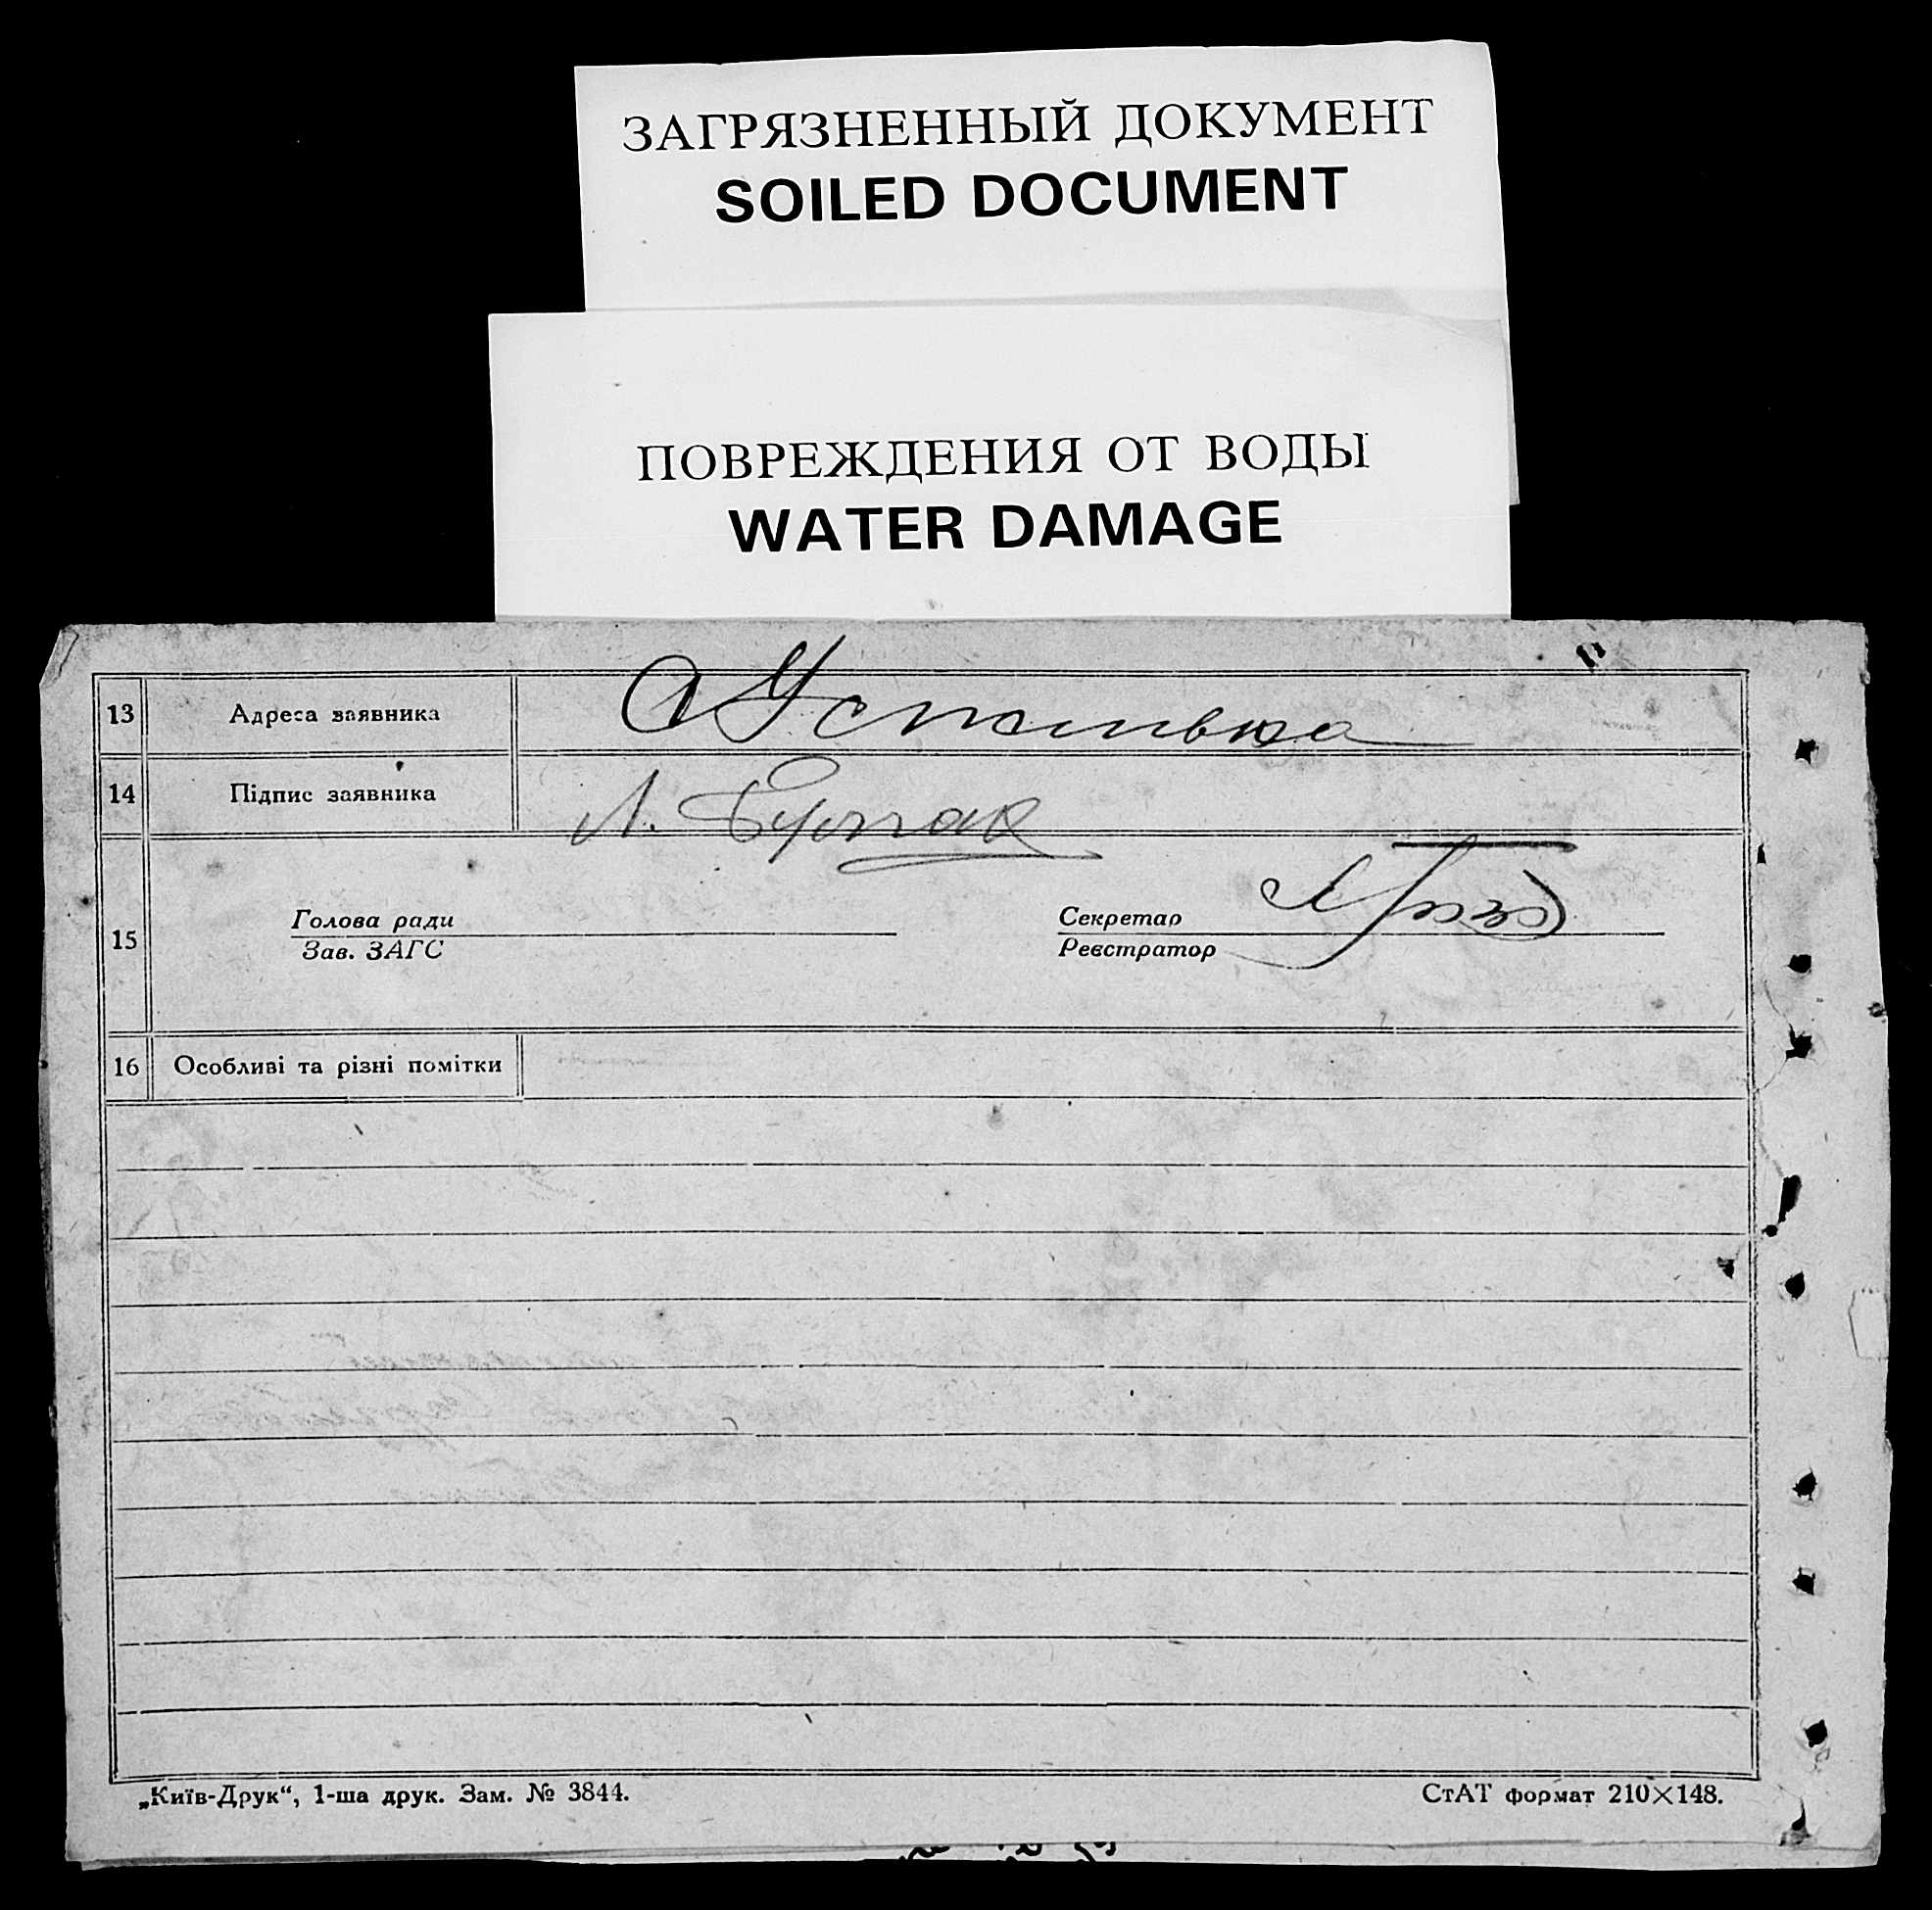 ЗАГРЯЗНЕННЫЙ ДОКУМЕНТ
SOILED DOCUMENT
ПОВРЕЖДЕНИЯ ОТ ВОДЫ
WATER DAMAGE
13 Адреса заявника
14 Підпис заявника Л.
15 Голова ради Секретар
Зав. ЗАГС Реєстратор
16 Особливі та різні помітки
„Київ-Друк“, 1-ша друк. Зам. № 3844. СтАТ формат 210×148.